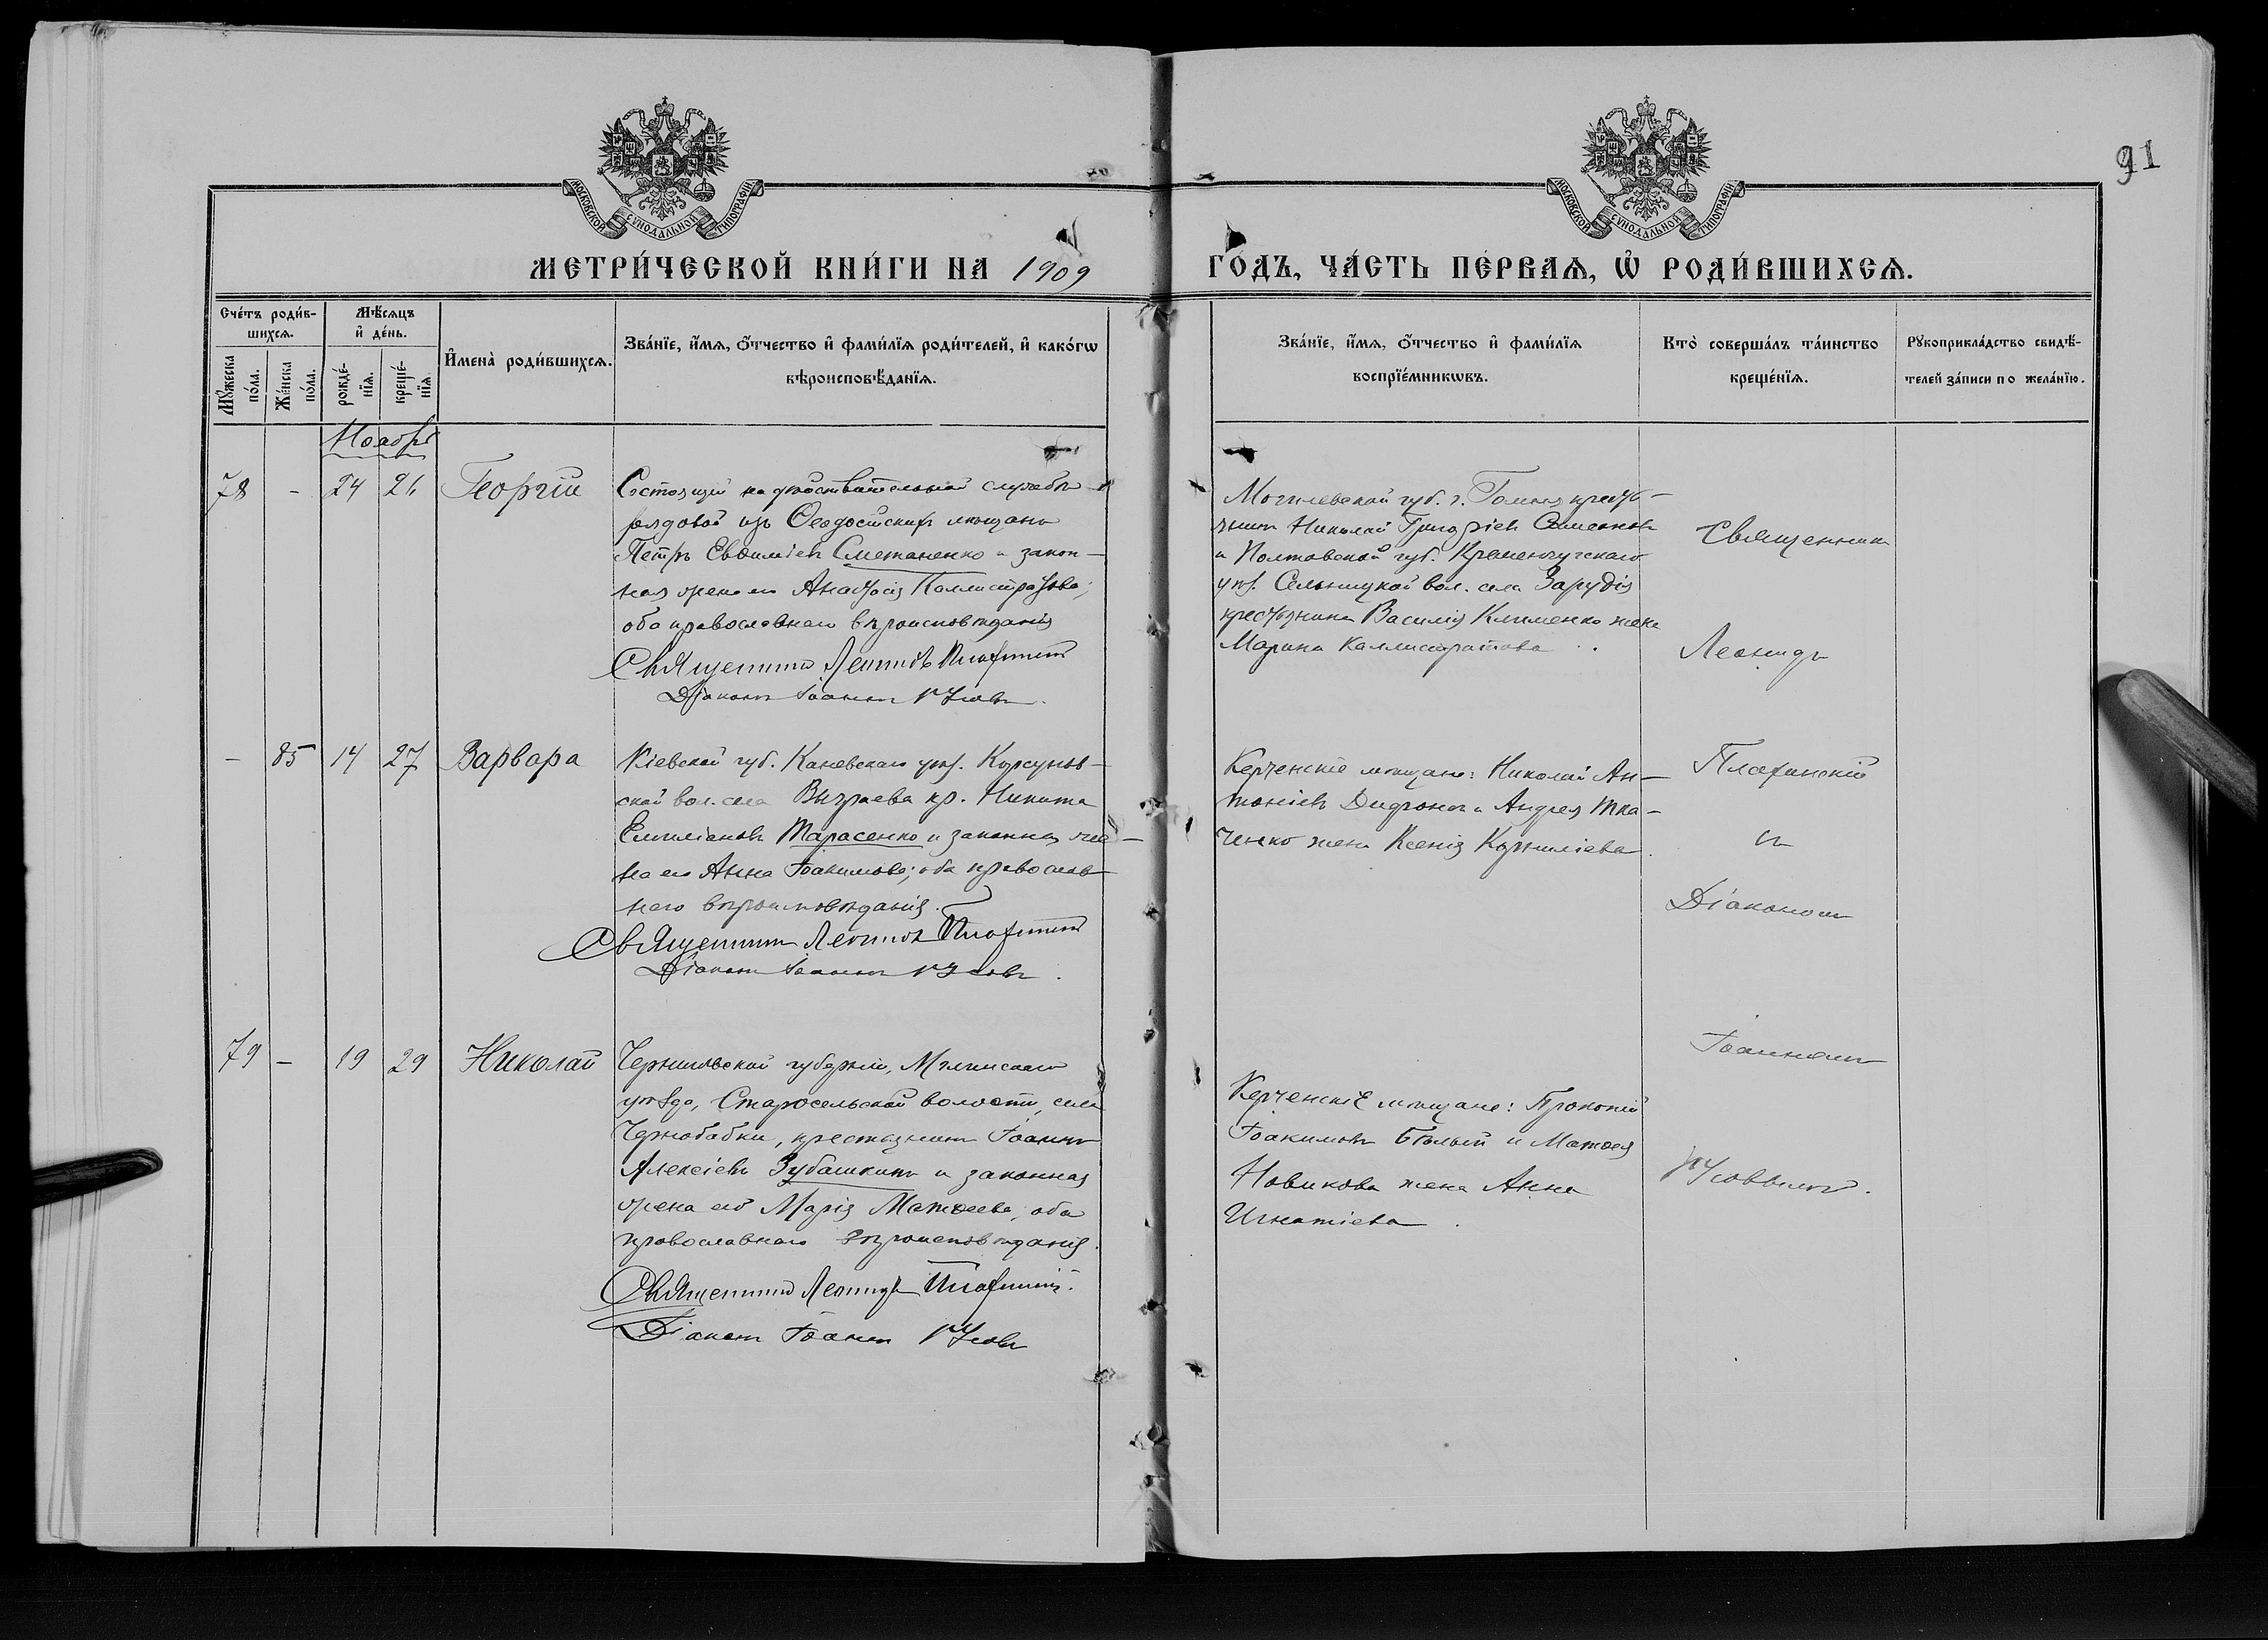 91
МОСКОВСКОЙ СѴНОДАЛЬНОЙ ТИПОГРАФІИ
МОСКОВСКОЙ СѴНОДАЛЬНОЙ ТИПОГРАФІИ
МЕТРИ́ЧЕСКОЙ КНИ́ГИ НА 1909
ГО́ДЪ, ЧА́СТЬ ПЕ́РВАѦ, Ѡ҆ РОДИ́ВШИХСѦ.
Сче́тъ роди́в-
шихсѧ.
Мꙋ́жеска по́ла.
Же́нска по́ла.
Мѣ́сѧцъ
и҆ де́нь.
рожде́-
нїѧ.
креще́-
нїѧ.
И҆́мена̀ роди́вшихсѧ.
Зва́нїе, и҆́мѧ, ѻ҆́тчество и҆ фами́лїѧ роди́телей, и҆ како́гѡ
вѣроисповѣ́данїѧ.
Зва́нїе, и҆́мѧ, ѻ҆́тчество и҆ фами́лїѧ
воспрїе́мникѡвъ.
Кто̀ соверша́лъ та́инство
креще́нїѧ.
Рꙋкоприкла́дство свидѣ́-
телей за́писи по жела́нїю.
Ноября
78 - 24 26 Георгій
Состоящій на дѣйствительной службѣ
рядовой изъ Ѳеодосійскихъ мѣщанъ
Петръ Евѳиміевъ Сметаненко и закон-
ная жена его Анастасія Каллистратова,
оба православнаго вѣроисповѣданія
Священникъ Леонидъ Плафинскій
Діаконъ Іоаннъ Усовъ.
Могилевской губ. г. Гомеля кресть-
янинъ Николай Григоріевъ Симоновъ
и Полтавской губ. Кременчугскаго
уѣз. вол. села Зарудія
крестьянина Василія Клименко жена
Марина Каллистратова
- 85 14 27 Варвара
Кіевской губ. Каневскаго уѣз. Корсунов-
ской вол. села Выграева кр. Никита
Емиліановъ Тарасенко и законная же-
на его Анна Іоакимова; оба православ-
наго вѣроисповѣданія.
Священникъ Леонидъ Плафинскій
Діаконъ Іоаннъ Усовъ.
Керченскіе мѣщане: Николай Ан-
тоніевъ и Андрея Тка-
ченко жена Ксенія Корниліева.
79 - 19 29 Николай
Черниговской губерніи, Мглинскаго
уѣзда, Старосельской волости, села
Чернобабки, крестьянинъ Іоаннъ
Алексіевъ Зубашкинъ и законная
жена его Марія Матѳеева, оба
православнаго вѣроисповѣданія.
Священникъ Леонидъ Плафинскій.
Діаконъ Іоаннъ Усовъ
Керченскіе мѣщане: Прокопій
Іоакимовъ Бѣлый и Матѳея
Новикова жена Анна
Игнатіева.
Священникъ
Леонидъ
Плафинскій
съ
Діакономъ
Іоанномъ
Усовымъ.